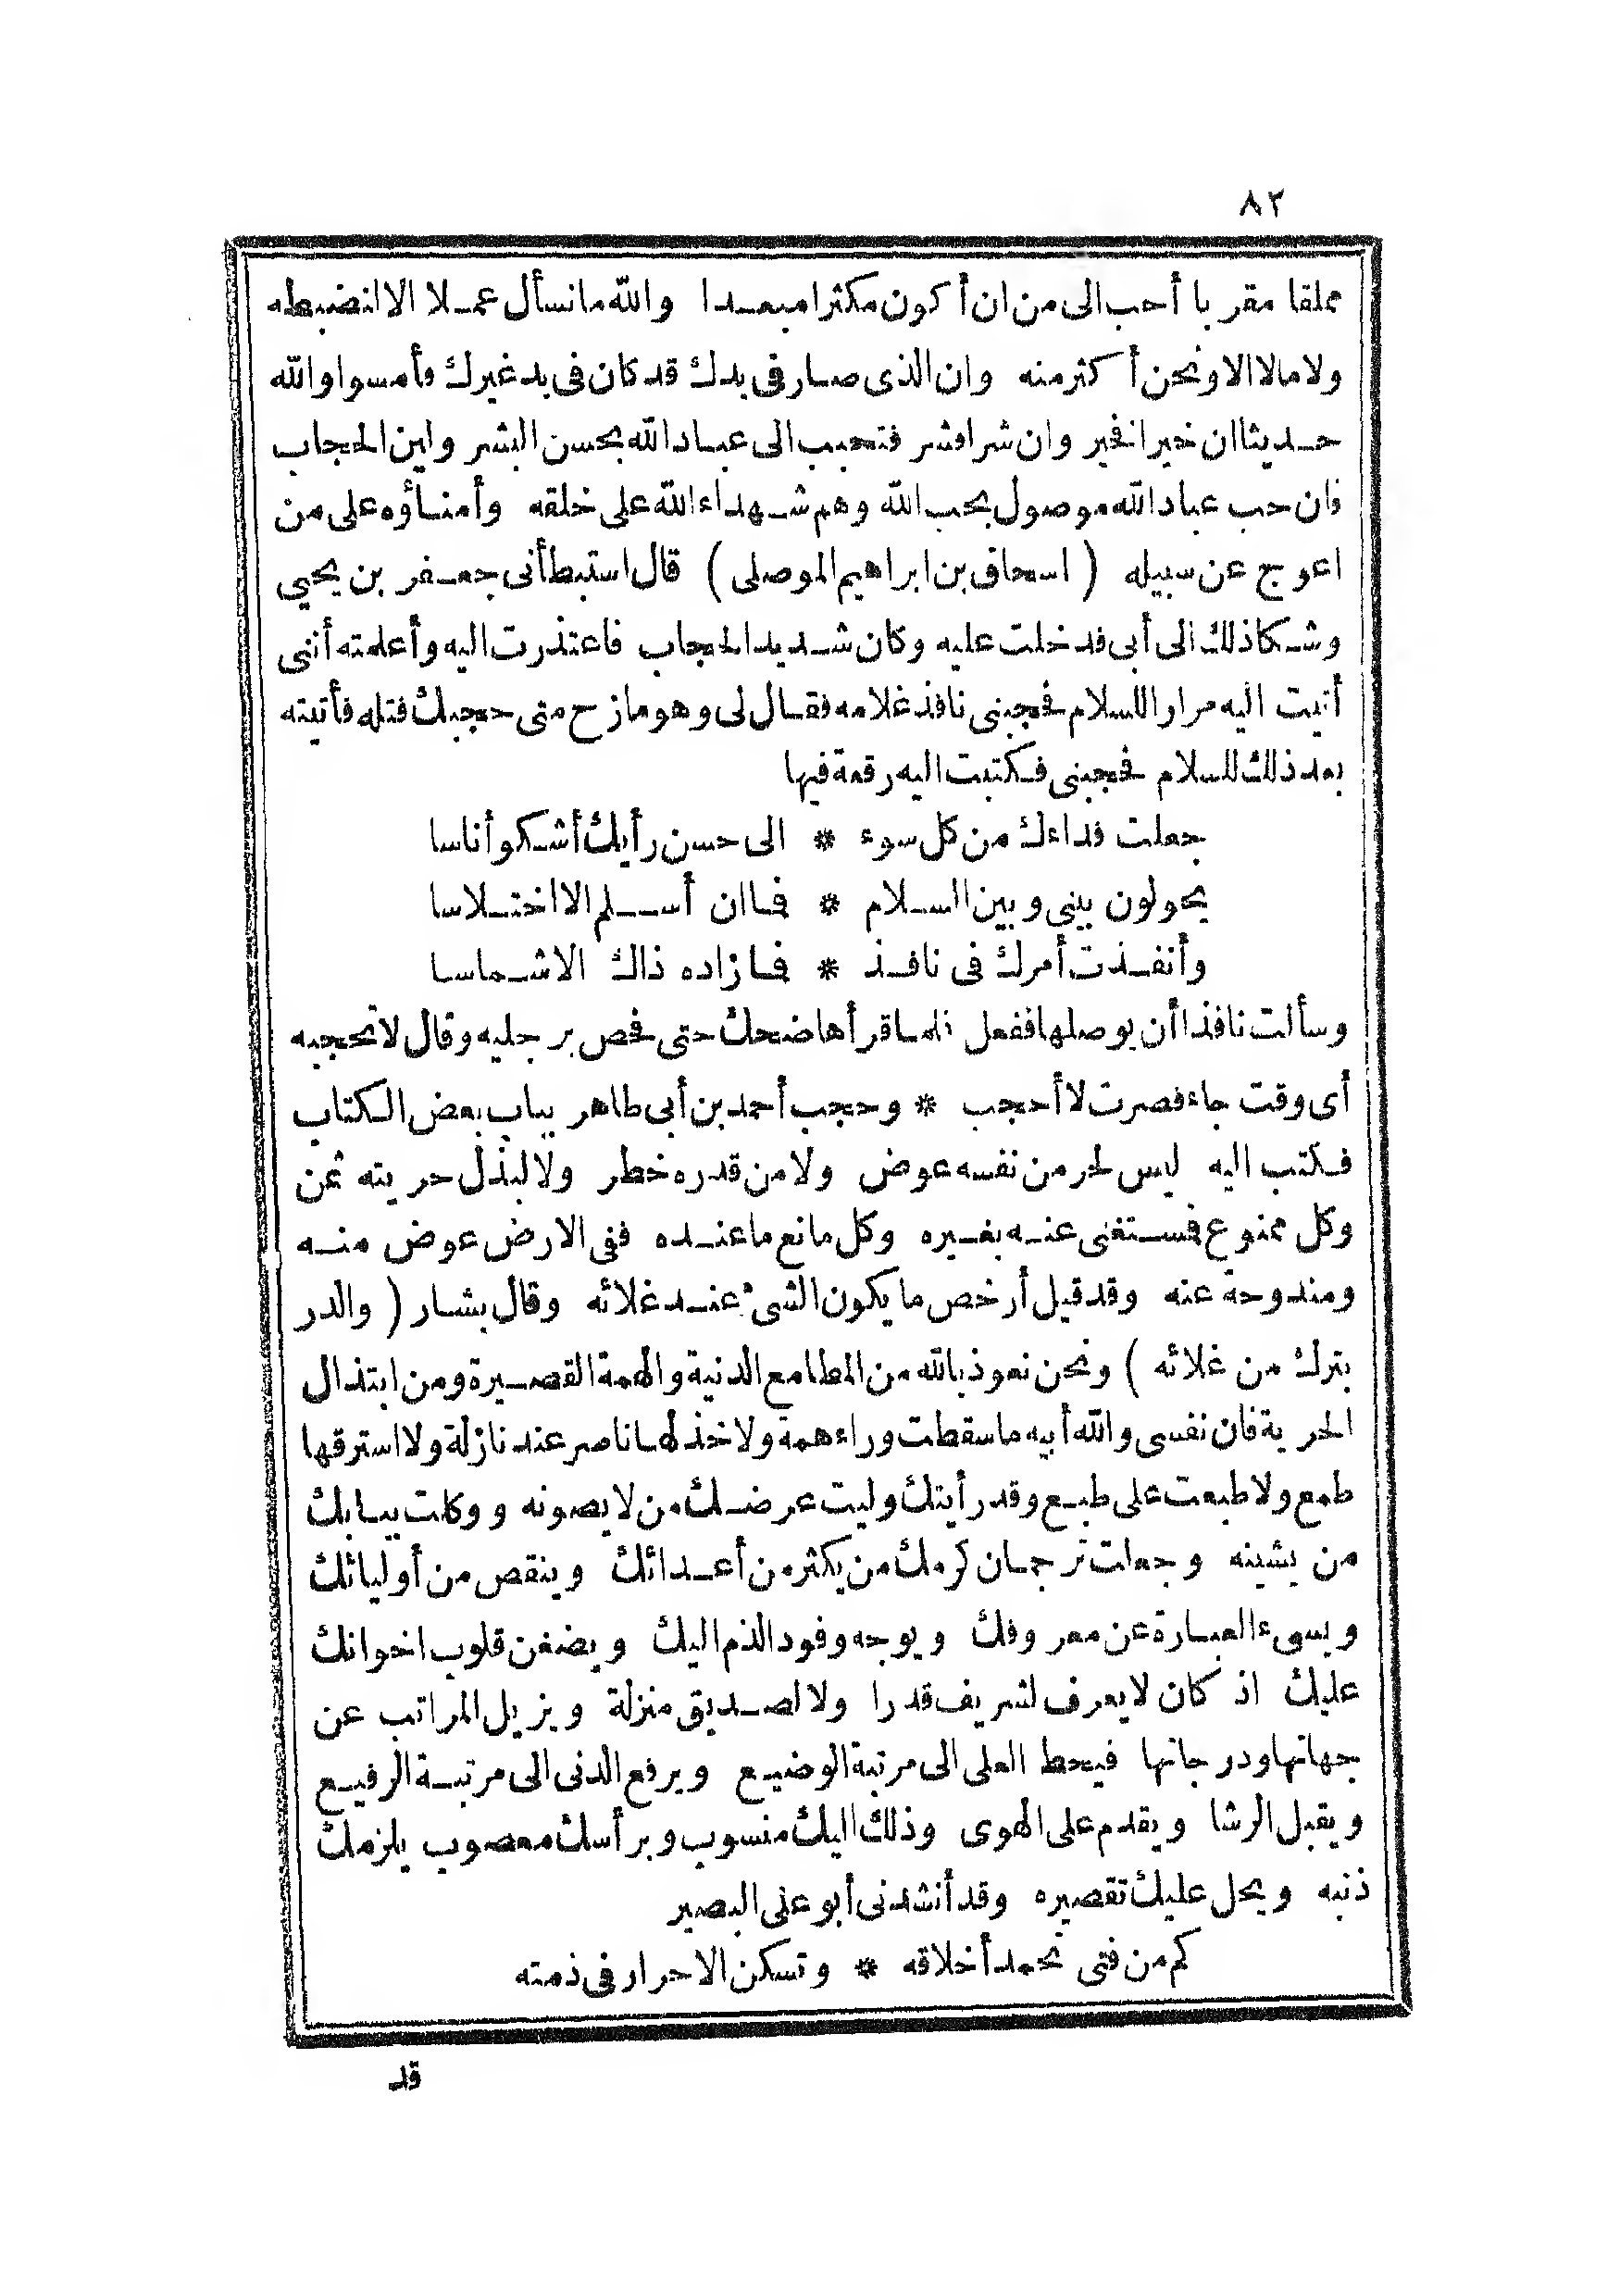 ٨٢
مملقا مقربا أحب الى من ان أكون مكثرا مبعدا والله ما نسأل عملا الا لنضبطه
ولا مالا الا ونحن أكثر منه وان الذى صار فى يدك قد كان فى يد غيرك فأمسوا والله
حديثا ان خيرا فخير وان شرا فشر فتحبب الى عباد الله بحسن البشر ولين الحجاب
فان حب عباد الله موصول بحب الله وهم شهداء الله على خلقه وأمناؤه على من
اعوج عن سبيله ( اسحاق بن ابراهيم الموصلى ) قال استبطأنى جعفر بن يحيى
وشكا ذلك الى أبى فدخلت عليه وكان شديد الحجاب فاعتذرت اليه وأعلمته أننى
أتيت اليه مرارا للسلام فحجبنى نافذ غلامه فقال لى وهو مازح متى حجبك فنله فأتيته
بعد ذلك للسلام فحجبنى فكتبت اليه رقعة فيها
جعلت فداءك من كل سوء * الى حسن رأيك أشكو أناسا
يحولون بينى وبين السلام * فما ان أسلم الا اختلاسا
وأنفذت أمرك فى نافذ * فما زاده ذاك الا شماسا
وسألت نافذا أن يوصلها ففعل فلما قرأها ضحك حتى فحص برجليه وقال لا تحجبه
أى وقت جاء فصرت لا أحجب * وحجب أحمد بن أبى طاهر بباب بعض الكتاب
فكتب اليه ليس لحر من نفسه عوض ولا من قدره خطر ولا لبذل حريته ثمن
وكل ممنوع فمستغنى عنه بغيره وكل مانع ما عنده ففى الارض عوض منه
ومندوحة عنه وقد قيل أرخص ما يكون الشىء عند غلائه وقال بشار ( والدر
يترك من غلائه ) ونحن نعوذ بالله من المطامع الدنية والهمة القصيرة ومن ابتذال
الحرية فان نفسى والله أبيه ما سقطت وراء همة ولا خذلها ناصر عند نازلة ولا استرقها
طمع ولا طبعت على طبع وقد رأيتك وليت عرضك من لا يصونه ووكلت ببابك
من يشينه وجعلت ترجمان كرمك من يكثر من أعدائك وينقص من أوليائك
ويسىء العبارة عن معروفك ويوجه وفود الذم اليك ويضغن قلوب اخوانك
عليك اذ كان لا يعرف لشريف قدرا ولا لصديق منزلة ويزيل المراتب عن
جهاتها ودرجاتها فيحط العلى الى مرتبة الوضيع ويرفع الدنى الى مرتبة الرفيع
ويقبل الرشا ويقدم على الهوى وذلك اليك منسوب وبرأسك معصوب يلزمك
ذنبه ويحل عليك تقصيره وقد أنشدنى أبو على البصير
كم من فتى تحمد أخلاقه * وتسكن الاحرار فى ذمته
قد